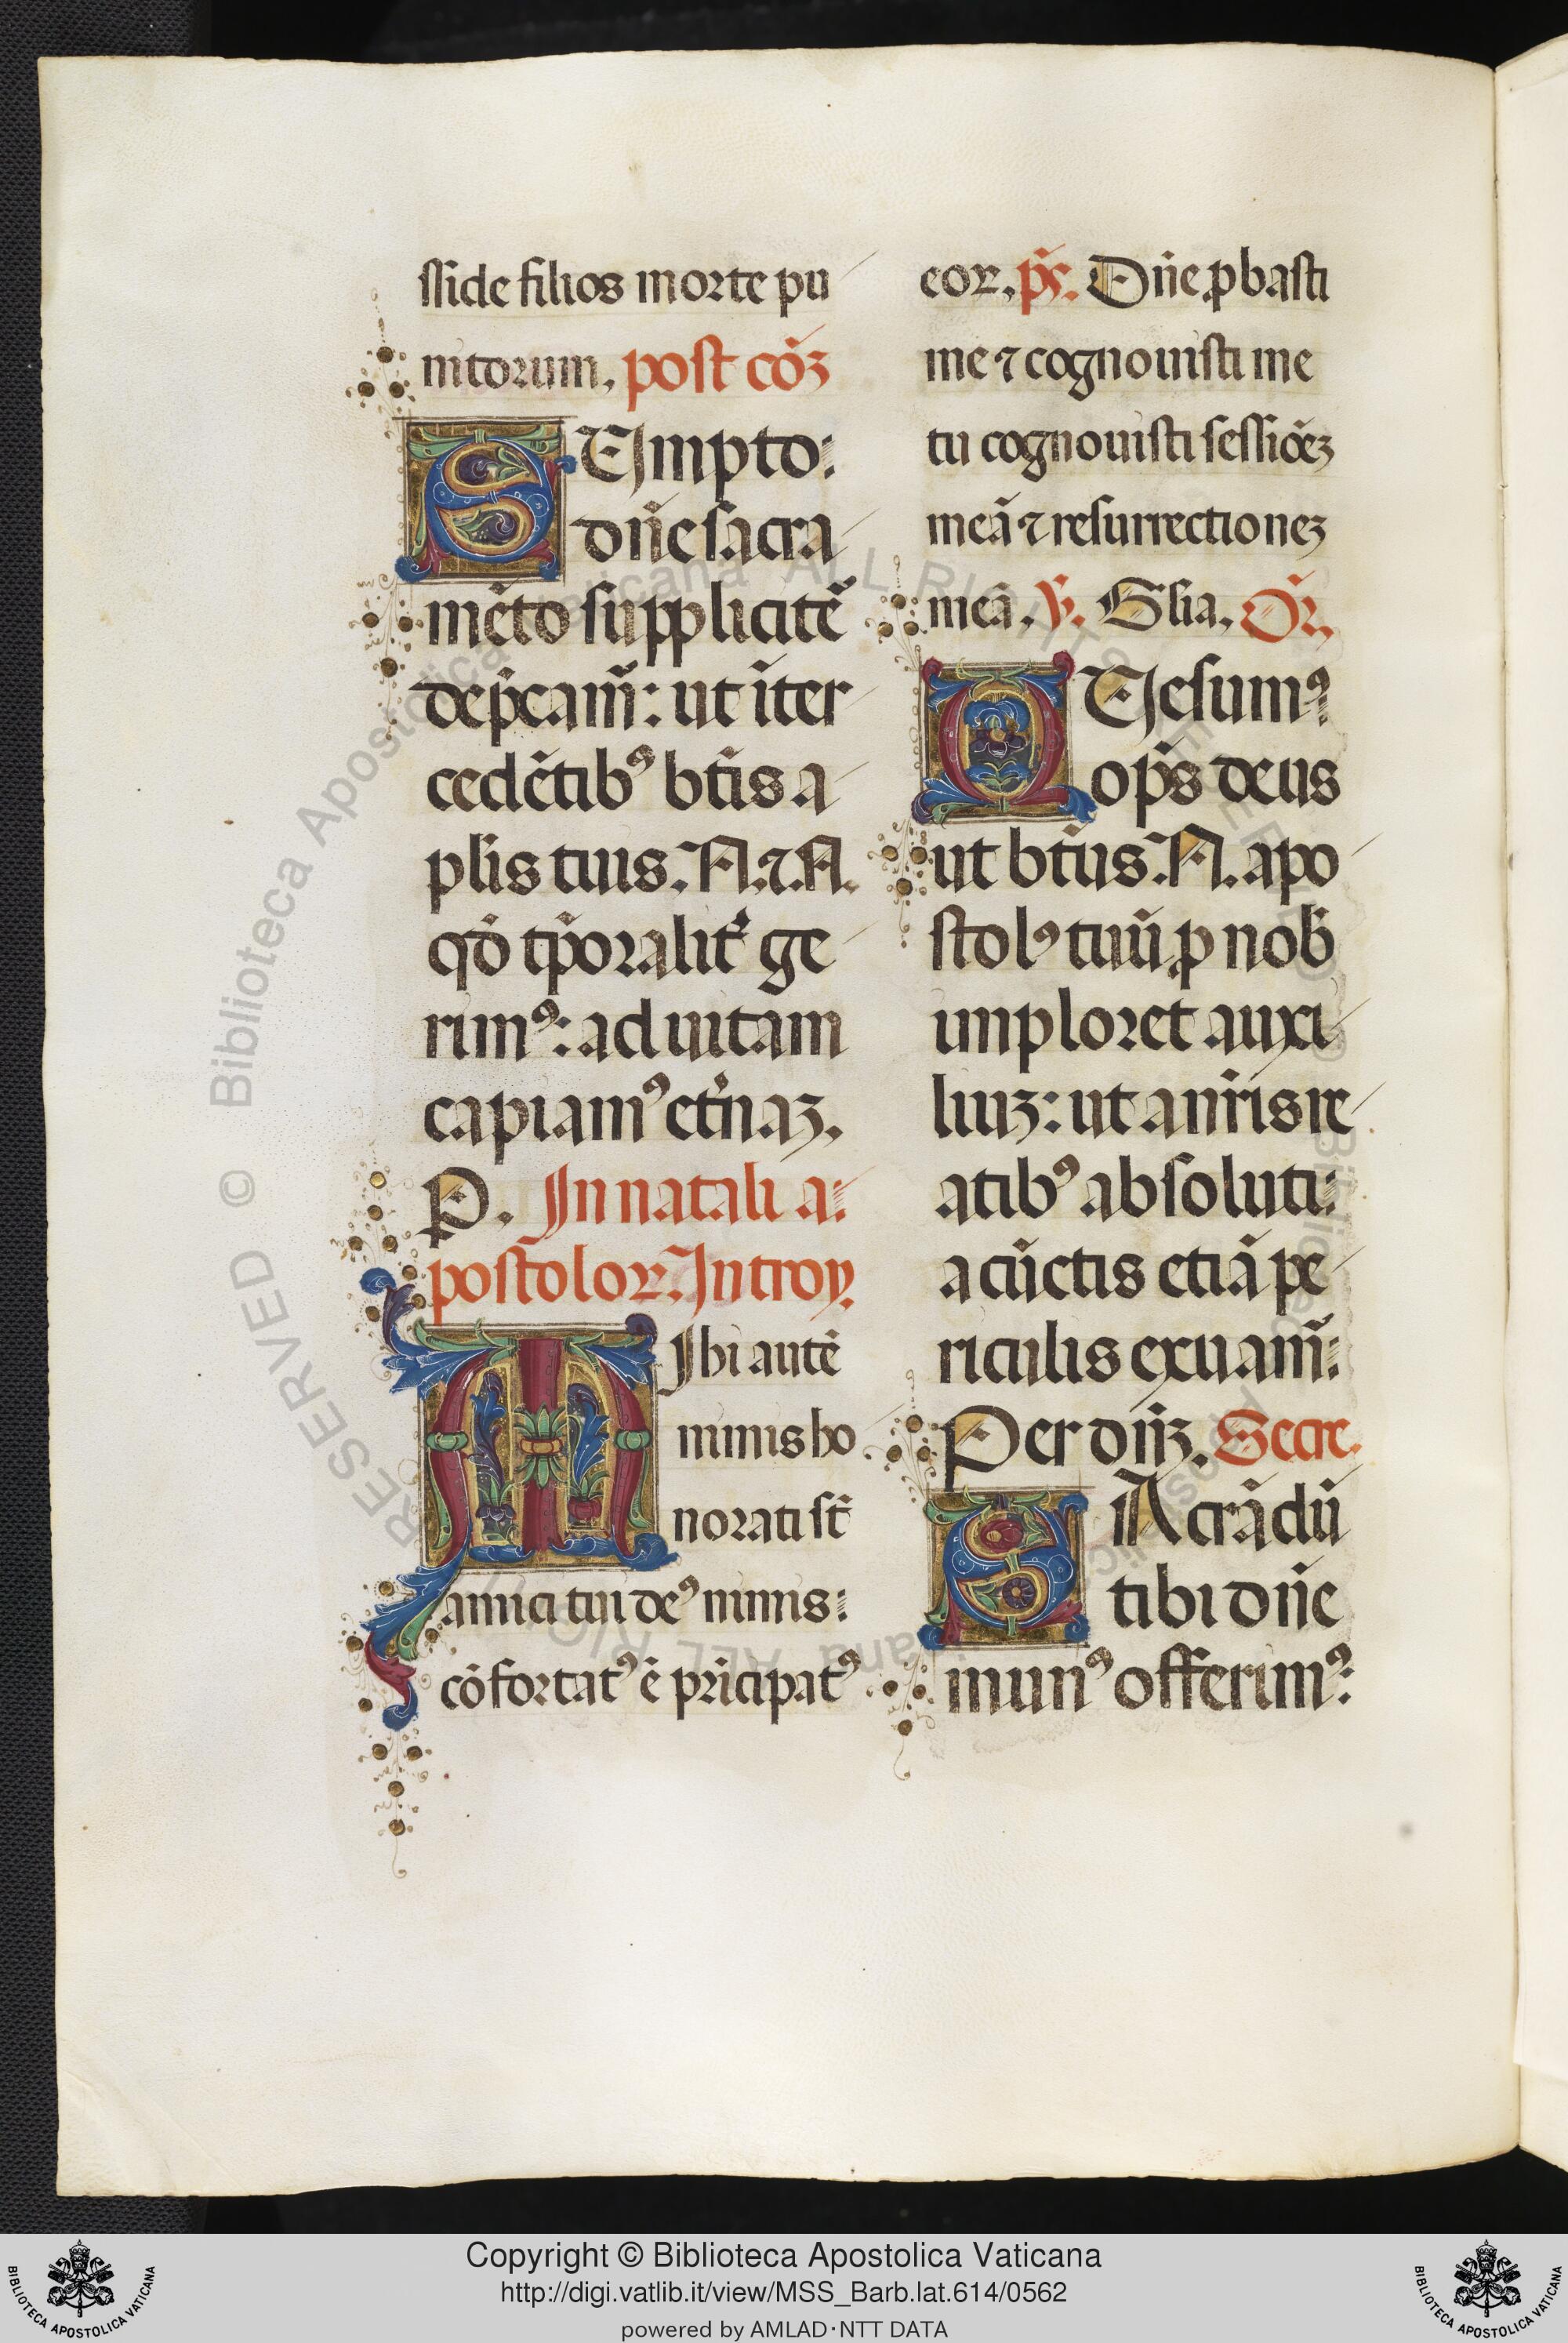 sside filios morte pu
nitorum. post cōꝫ
SUmpto:
dn̄e sacra
mēto supplicitē
dep̄cam̄: ut īter
cedētibꝰ btīs a
plīs tuis. N. ⁊. N.
qd̄ tp̄oralit̓ ge
rimꝰ: ad uitam
capiamꝰ et̓naꝫ.
P. In natali a:
postoloꝝ. Introy.
MIhi autē
nimis ho
norati st̄
amici tui deꝰ nimis:
cōfortatꝰ ē prīcipatꝰ
eoꝝ. p̄s. Dn̄e ꝓbasti
me ⁊ cognouisti me
tu cognouisti sessiōeꝫ
meā ⁊ resurrectioneꝫ
meā. ꝟ. Glīa. Or̄.
QUesumꝰ
op̄s deus
ut btūs. N. apo
stolꝰ tuū ꝓ nob̄
imploret auxi
liuꝫ: ut a nr̄is re
atibꝰ absoluti:
a cūctis etiā pe
riculis exuam̄:
Per dn̄ꝫ. Secre.
SAcrādū
tibi dn̄e
munꝰ offerimꝰ:
© Biblioteca Apostolica Vaticana ALL RIGHTS RESERVED
BIBLIOTECA APOSTOLICA VATICANA
Copyright © Biblioteca Apostolica Vaticana
http://digi.vatlib.it/view/MSS_Barb.lat.614/0562
powered by AMLAD·NTT DATA
BIBLIOTECA APOSTOLICA VATICANA